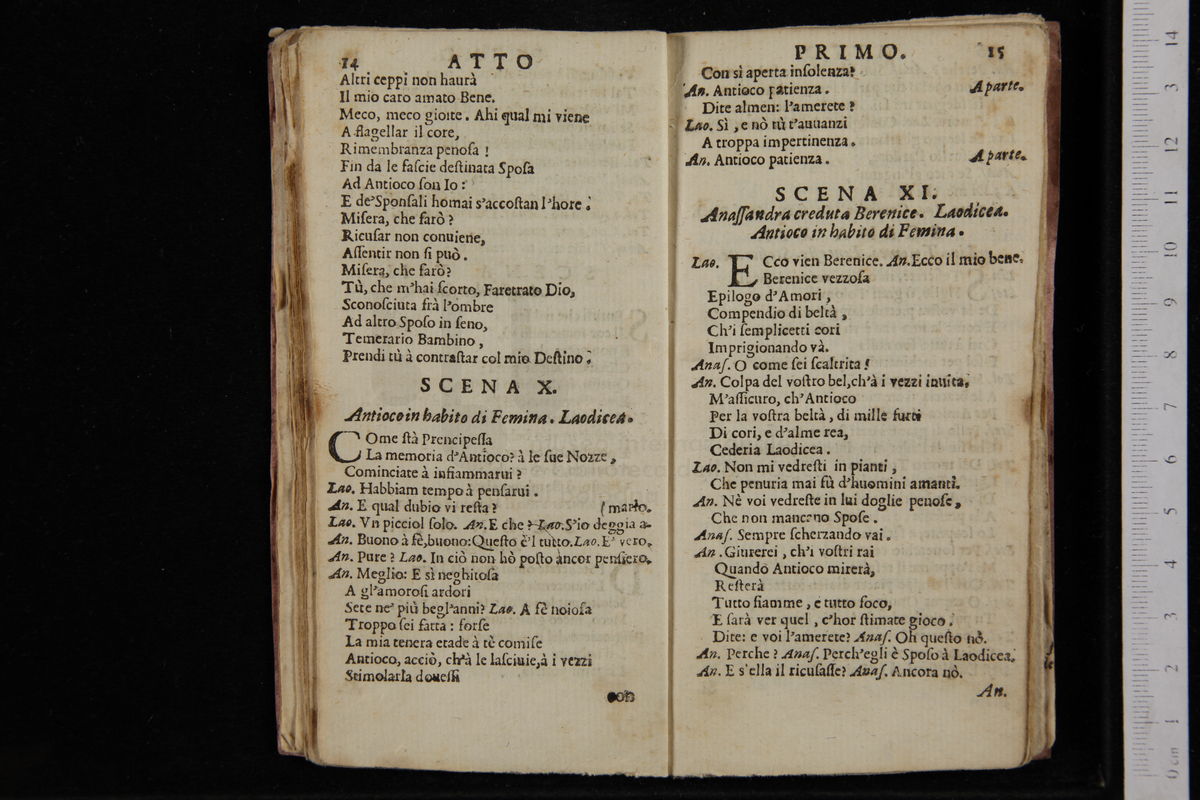 14 ATTO
Altri ceppi non haurà
Il mio caro amato Bene.
Meco, meco gioite. Ahi qual mi viene
A flagellar il core,
Rimembranza penosa !
Fin da le fascie destinata Sposa
Ad Antioco son Io :
E de'Sponsali homai s'accostan l'hore.
Misera, che farò ?
Ricusar non conuiene,
Assentir non si può.
Misera, che farò?
Tù, che m'hai scorto, Faretrato Dio,
Sconosciuta frà l'ombre
Ad altro Sposo in seno,
Temerario Bambino,
Prendi tù à contrastar col mio Destino.
SCENA X.
Antioco in habito di Femina. Laodicea.
COme stà Prencipessa
La memoria d'Antioco? à le sue Nozze,
Cominciate à infiammarui ?
Lao. Habbiam tempo à pensarui.
An. E qual dubio vi resta ? (marlo.
Lao. Vn picciol solo. An. E che ? Lao. S'io deggia a-
An. Buono à fè, buono: Questo è'l tutto. Lao. E' vero.
An. Pure ? Lao. In ciò non hò posto àncor pensiero.
An. Meglio: E sì neghitosa
A gl'amorosi ardori
Sete ne' più begl'anni? Lao. A fè noiosa
Troppo sei fatta : forse
La mia tenera etade à tè comise
Antioco, acciò, ch'à le lasciuie, à i vezzi
Stimolarla douessi
Con
PRIMO. 15
Con sì aperta insolenza?
An. Antioco patienza. A parte.
Dite almen: l'amerete ?
Lao. Sì, e nò tù t'auuanzi
A troppa impertinenza.
An. Antioco patienza. A parte.
SCENA XI.
Anassandra creduta Berenice. Laodicea.
Antioco in habito di Femina.
Lao. ECco vien Berenice. An. Ecco il mio bene.
Berenice vezzosa
Epilogo d'Amori,
Compendio di beltà,
Ch'i semplicetti cori
Imprigionando và.
Anas. O come sei scaltrita !
An. Colpa del vostro bel, ch'à i vezzi inuita.
M'assicuro, ch'Antioco
Per la vostra beltà, di mille furti
Di cori, e d'alme rea,
Cederia Laodicea.
Lao. Non mi vedresti in pianti,
Che penuria mai fù d'huomini amanti.
An. Nè voi vedreste in lui doglie penose,
Che non mancano Spose.
Anas. Sempre scherzando vai.
An. Giurerei, ch'i vostri rai
Quando Antioco mirerà,
Resterà
Tutto fiamme, e tutto foco,
E sarà ver quel, c'hor stimate gioco.
Dite: e voi l'amerete? Anas. Oh questo nò.
An. Perche ? Anas. Perch'egli è Sposo à Laodicea.
An. E s'ella il ricusasse? Anas. Ancora nò.
An.